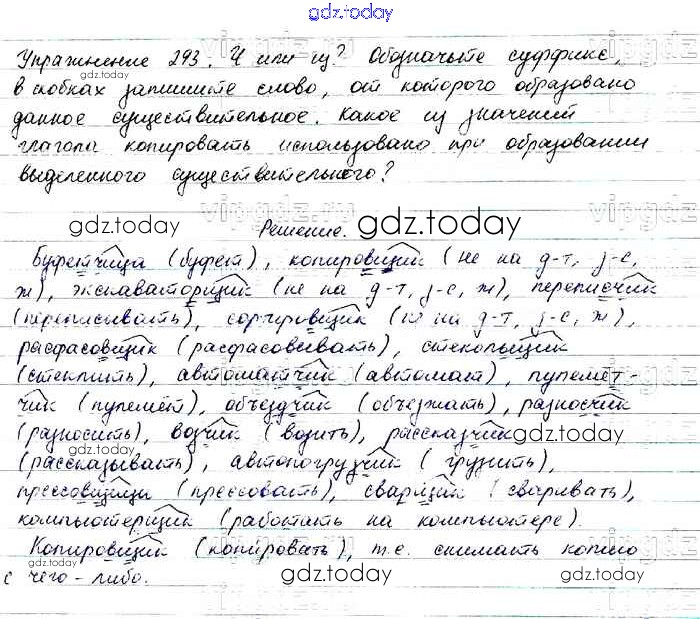 gdz.today
Упражнение 293. Ч или щ? Обозначьте суффикс,
в скобках запишите слово, от которого образовано
данное существительное. Какое из значений
глагола копировать использовано при образовании
выделенного существительного?
Решение.
Буфетчица (буфет), копировщик (не на д-т, з-с,
ж), экскаваторщик (не на д-т, з-с, ж), переписчик
(переписывать), сортировщик (не на д-т, з-с, ж),
расфасовщик (расфасовывать), стекольщик
(стеклить), автоматчик (автомат), пулемёт-
чик (пулемёт), объездчик (объезжать), разносчик
(разносить), возчик (возить), рассказчик
(рассказывать), автопогрузчик (грузить),
прессовщица (прессовать), сварщик (сваривать),
компьютерщик (работать на компьютере).
Копировщик (копировать), т.е. снимать копию
с чего-либо.
gdz.today
gdz.today
gdz.today
gdz.today
gdz.today
gdz.today
gdz.today
gdz.today
gdz.today
gdz.today
gdz.today
vipgdz.ru
vipgdz.ru
vipgdz.ru
vipgdz.ru